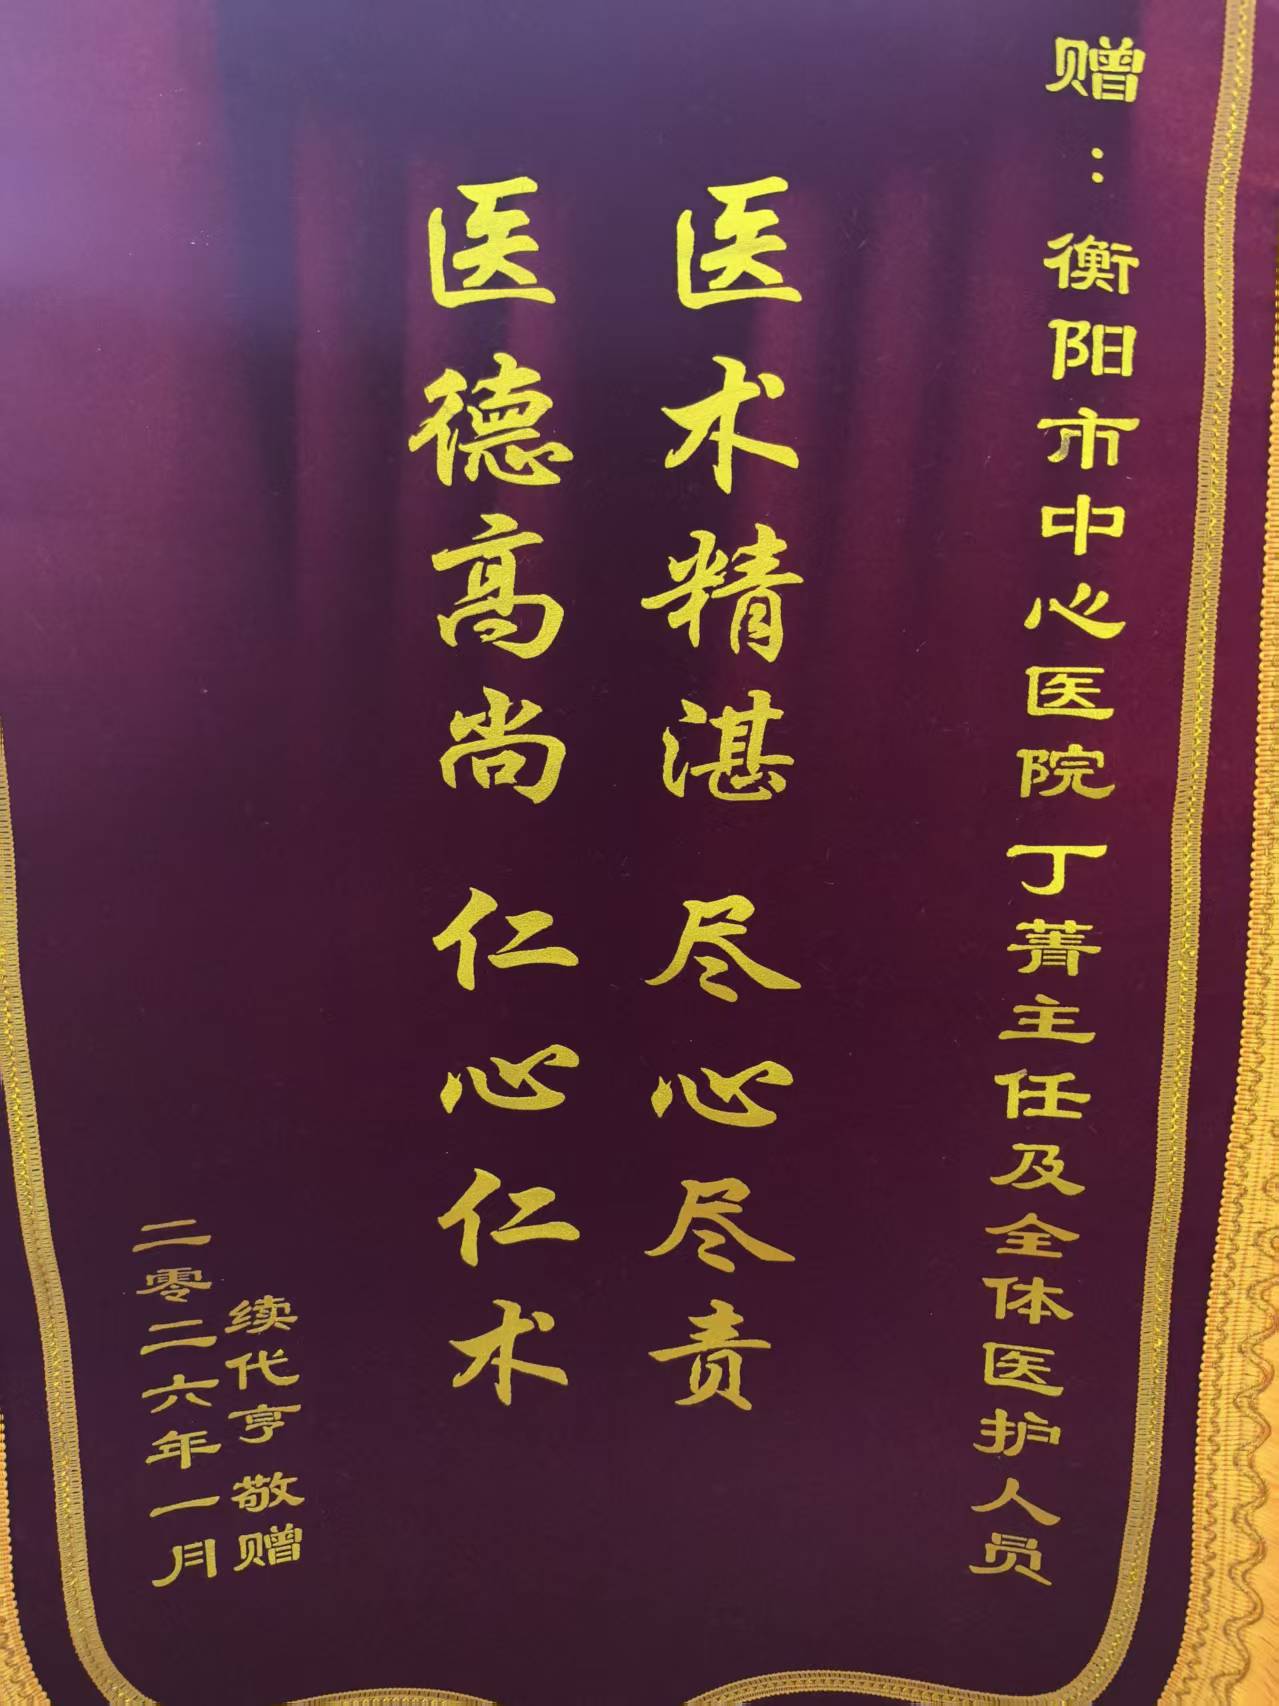 赠：衡阳市中心医院丁菁主任及全体医护人员
医术精湛 尽心尽责
医德高尚 仁心仁术
续代亨 敬赠
二零二六年一月